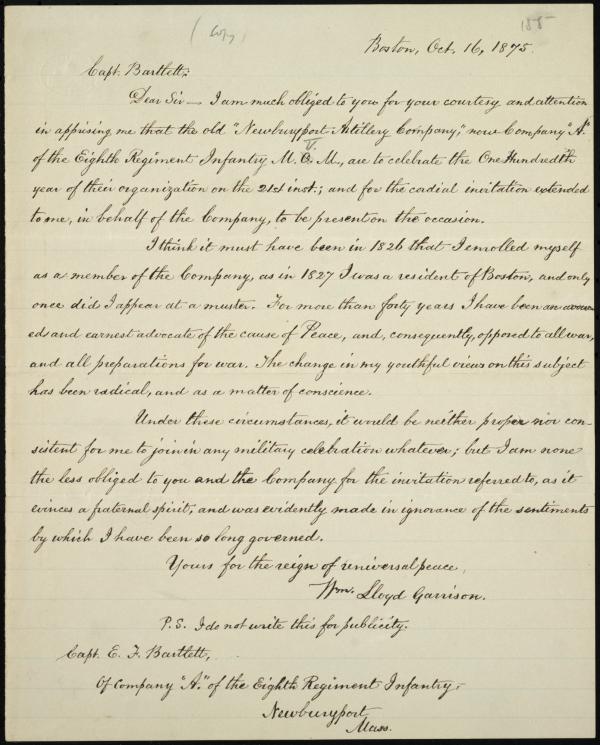 (Copy)
188
Boston, Oct. 16, 1875.
Capt. Bartlett:
Dear Sir — I am much obliged to you for your courtesy and attention
in apprising me that the old "Newburyport Artillery Company," now Company "A"
V.
of the Eighth Regiment Infantry M. O. M., are to celebrate the One Hundredth
year of their organization on the 21st inst.; and for the cordial invitation extended
to me, in behalf of the Company, to be present on the occasion.
I think it must have been in 1826 that I enrolled myself
as a member of the Company, as in 1827 I was a resident of Boston, and only
once did I appear at a muster. For more than forty years I have been an avow-
ed and earnest advocate of the cause of Peace, and, consequently, opposed to all war,
and all preparations for war. The change in my youthful views on this subject
has been radical, and as a matter of conscience.
Under these circumstances, it would be neither proper nor con-
sistent for me to join in any military celebration whatever; but I am none
the less obliged to you and the Company for the invitation referred to, as it
evinces a fraternal spirit, and was evidently made in ignorance of the sentiments
by which I have been so long governed.
Yours for the reign of universal peace,
Wm. Lloyd Garrison.
P.S. I do not write this for publicity.
Capt. E. F. Bartlett,
Of Company "A." of the Eighth Regiment Infantry,
Newburyport,
Mass.